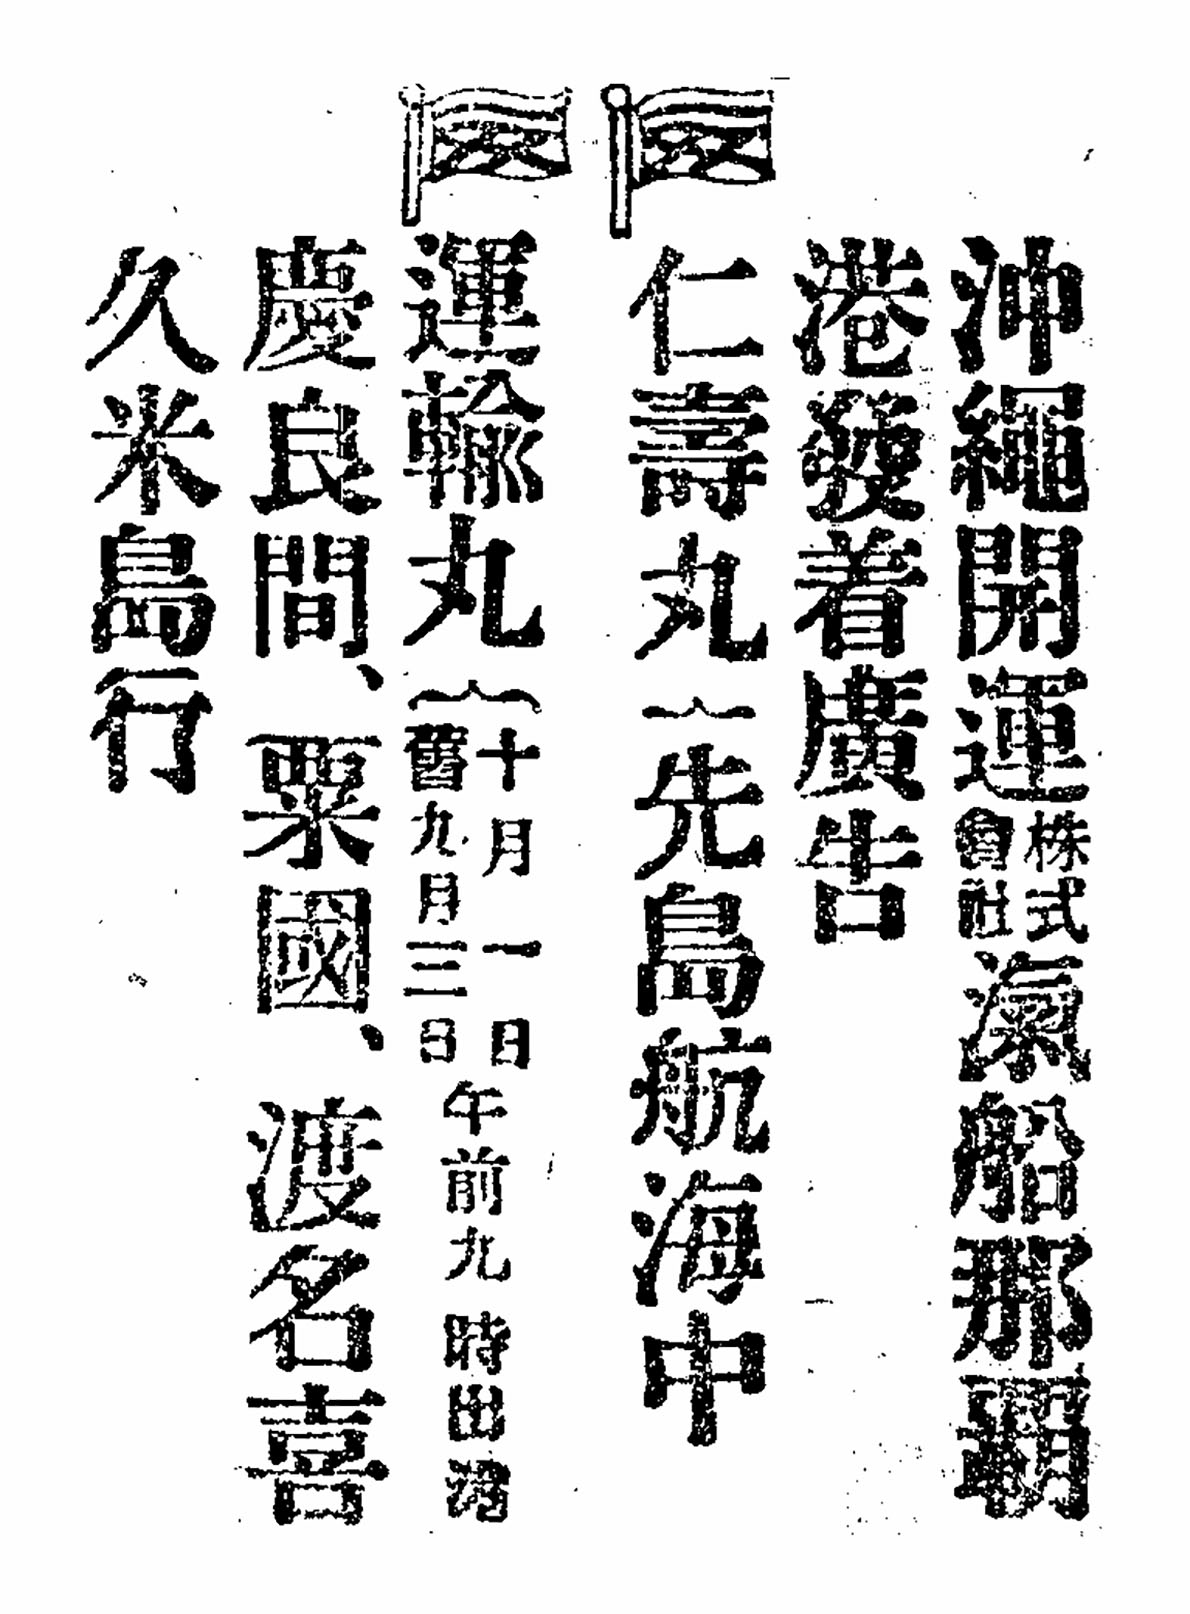 沖繩開運株式會社滊船那覇
港發着廣告
仁壽丸{先島航海中
運輸丸{十月一日
舊九月三日
午前九時出港
慶良間、粟國、渡名喜
久米島行